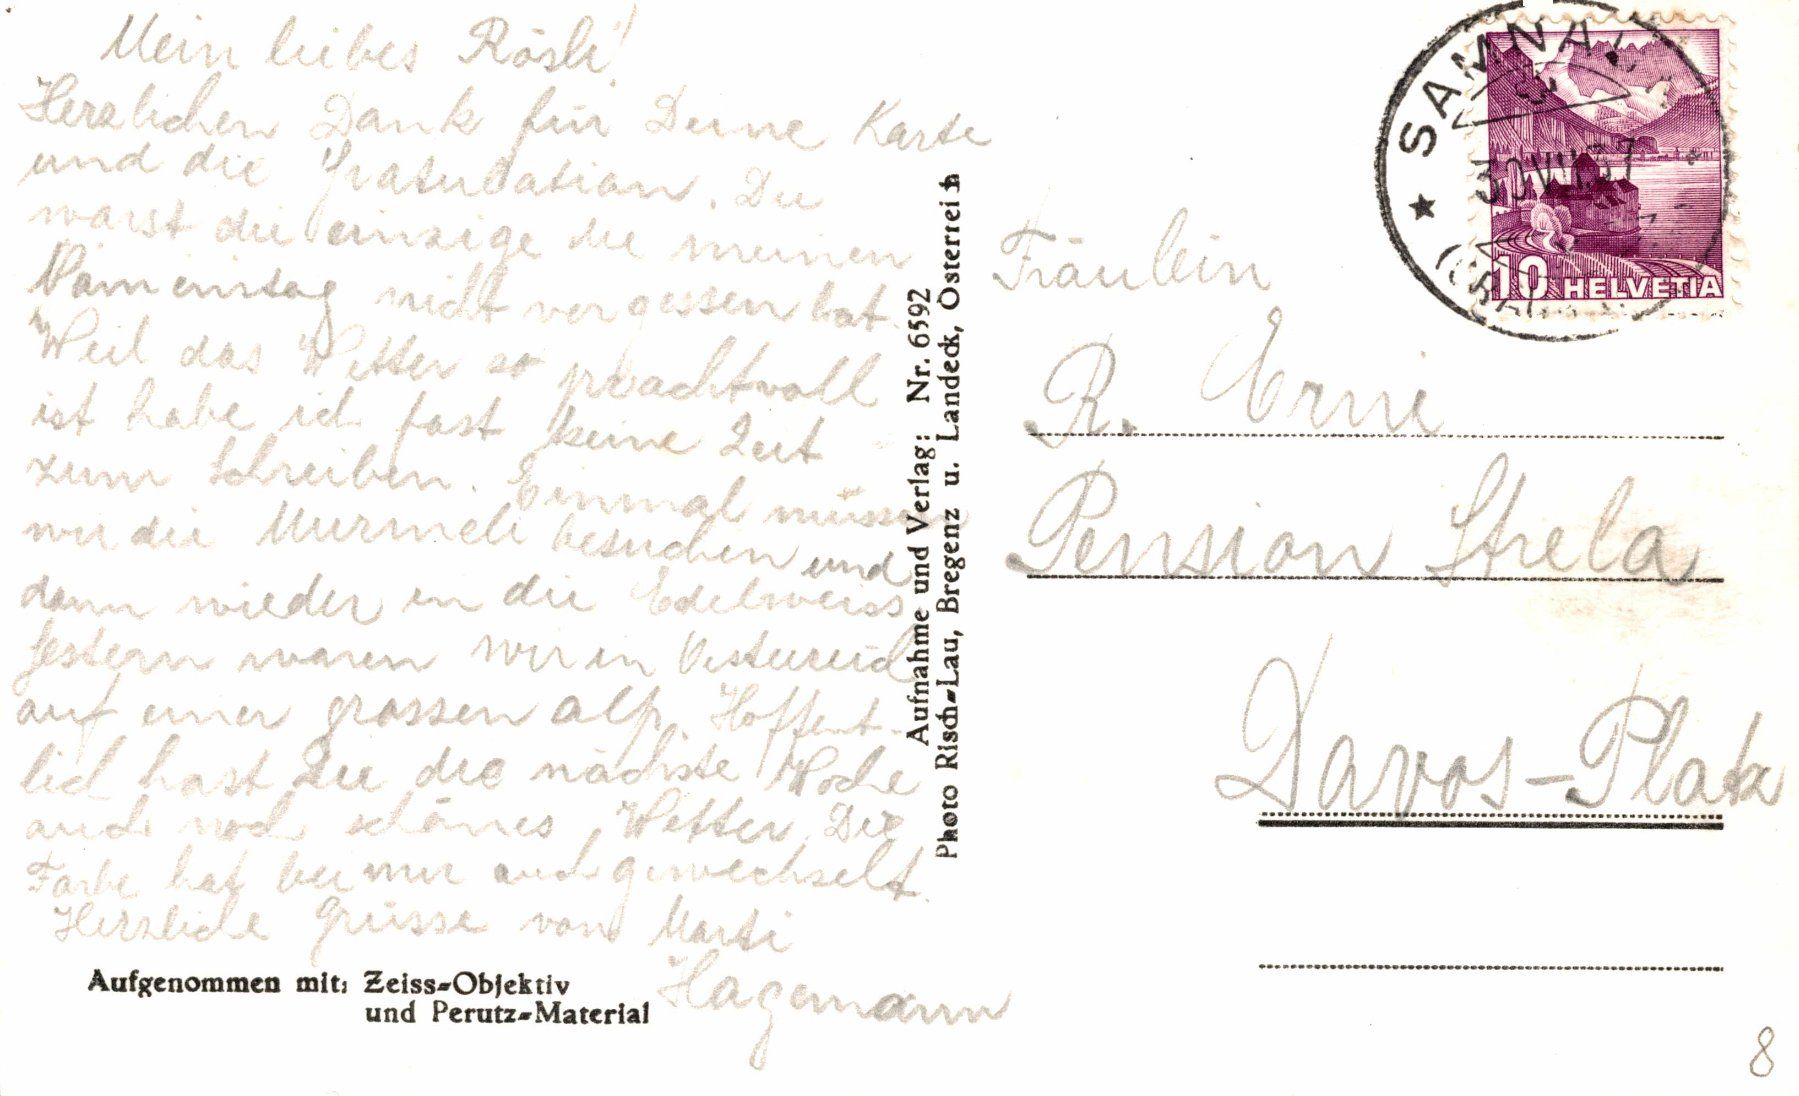 Mein liebes Rösli!
Herzlichen Dank für Deine Karte
und die Gratulation. Du
warst die einzige die meinen
Namenstag nicht vergessen hat.
Weil das Wetter so prachtvoll
ist habe ich fast keine Zeit
zum Schreiben. Einmal müssen
wir die Murmeli besuchen und
dann wieder in die Edelweiss
Gestern waren wir in
auf einer grossen Alp. Hoffent-
lich hast Du die nächste Woche
auch noch schönes Wetter. Die
Farbe hat bei mir auch gewechselt.
Herzliche Grüsse von Marti
Hagemann
Aufgenommen mit: Zeiss-Objektiv
und Perutz-Material
Aufnahme und Verlag: Nr. 6592
Photo Risch-Lau, Bregenz u. Landeck, Österreich
SAMNAU
30.VII.37
10 HELVETIA
Fräulein
R. Erni
Pension Strela
Davos-Platz
8